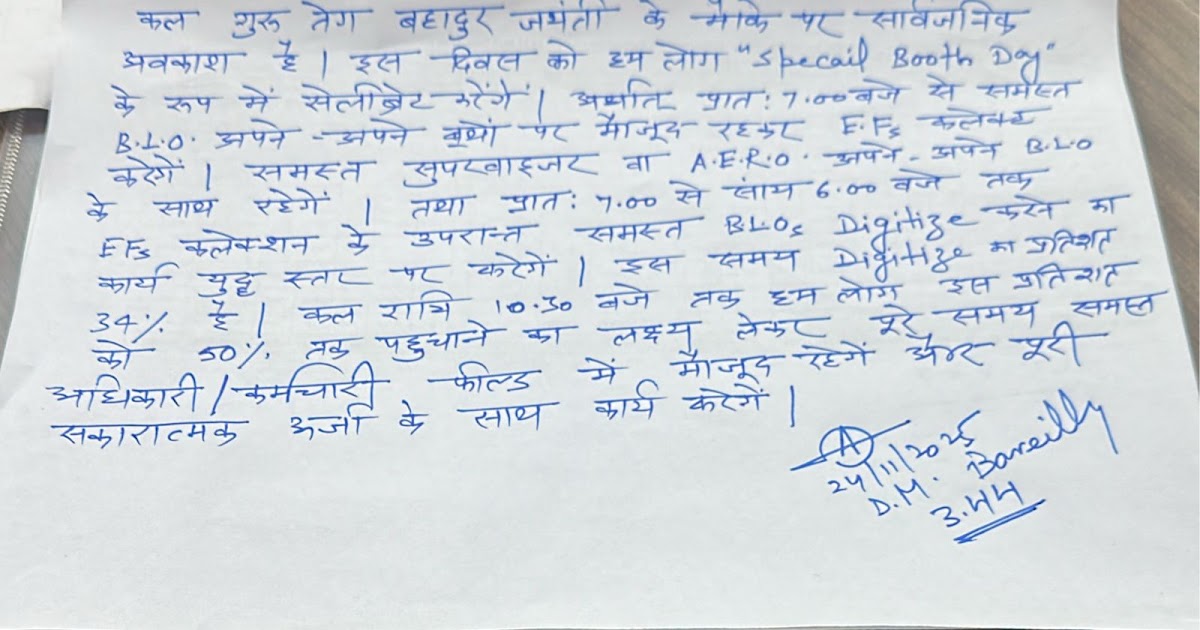 कल गुरू तेग बहादुर जयंती के मौके पर सार्वजनिक
अवकाश है | इस दिवस को हम लोग "Specail Booth Day"
के रूप में सेलीब्रेट करेंगें | अर्थात प्रात: 7.00 बजे से समस्त
B.L.O. अपने - अपने बूथों पर मौजूद रहकर E.Fs कलेक्ट
करेगें | समस्त सुपरवाइजर वा A.E.R.O. अपने - अपने B.L.O
के साथ रहेगें | तथा प्रात: 7.00 से सांय 6.00 बजे तक
EFs कलेक्शन के उपरान्त समस्त BLOs Digitize करने का
कार्य युद्ध स्तर पर करेगें | इस समय Digitize का प्रतिशत
34% है | कल रात्रि 10.30 बजे तक हम लोग इस प्रतिशत
को 50% तक पहुचाने का लक्ष्य लेकर पूरे समय समस्त
अधिकारी/कर्मचारी फील्ड में मौजूद रहेगें और पूरी
सकारात्मक ऊर्जा के साथ कार्य करेगें |
24/11/2025
D.M. Bareilly